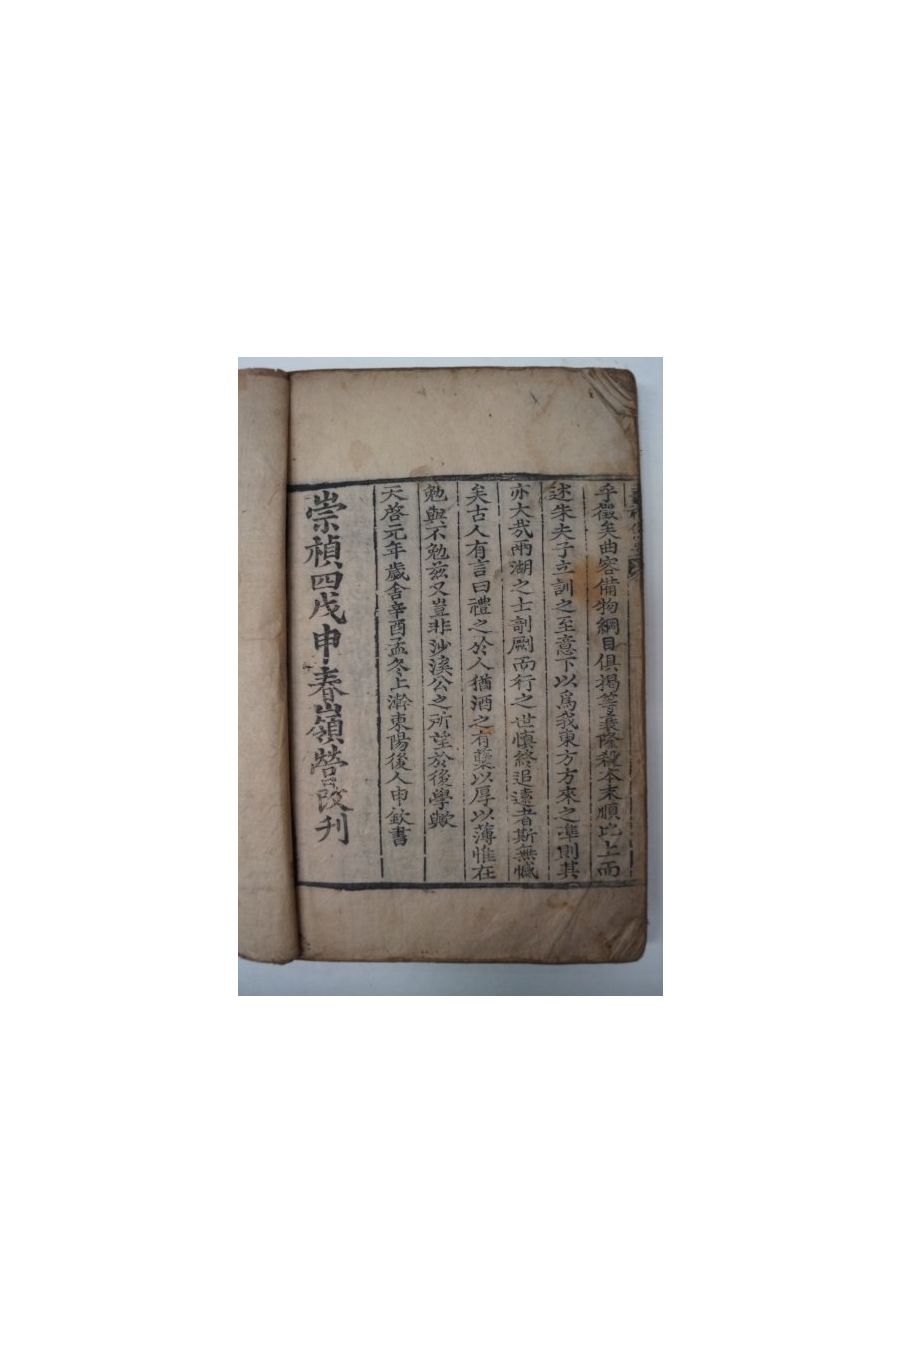 乎徵矣曲容備物綱目俱揭等差隆殺本末順比上而
述朱夫子立訓之至意下以爲我東方方來之準則其
亦大㢤兩湖之士剞劂而行之世愼終追遠者斯無憾
矣古人有言曰禮之於人猶酒之有糵以厚以薄惟在
勉與不勉玆又豈非沙溪公之所望於後學歟
天啓元年歲舍辛酉孟冬上澣東陽後人申欽書
崇禎四戊申春嶺營改刊